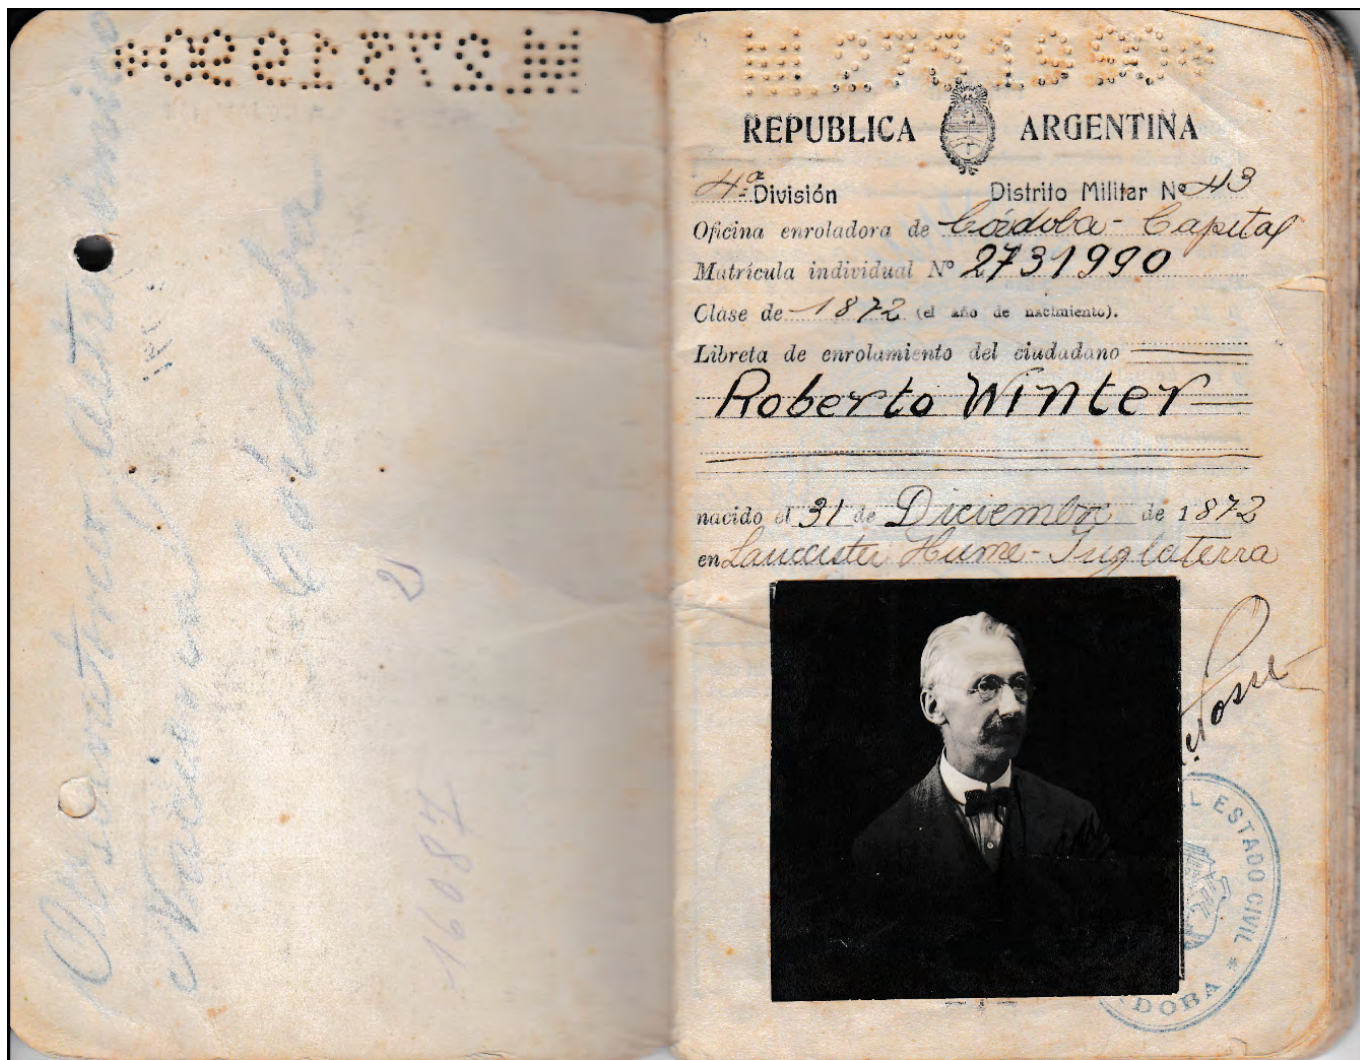 Observatorio Astronómico
Nacional
Córdoba
2
16087
M 2731990
REPUBLICA ARGENTINA
4ª División Distrito Militar Nº 43
Oficina enroladora de Córdoba - Capital
Matrícula individual Nº 2731990
Clase de 1872 (el año de nacimiento).
Libreta de enrolamiento del ciudadano
Roberto Winter
nacido el 31 de Diciembre de 1872
en Lancaster Hume - Inglaterra
L ESTADO CIVIL * RDOBA